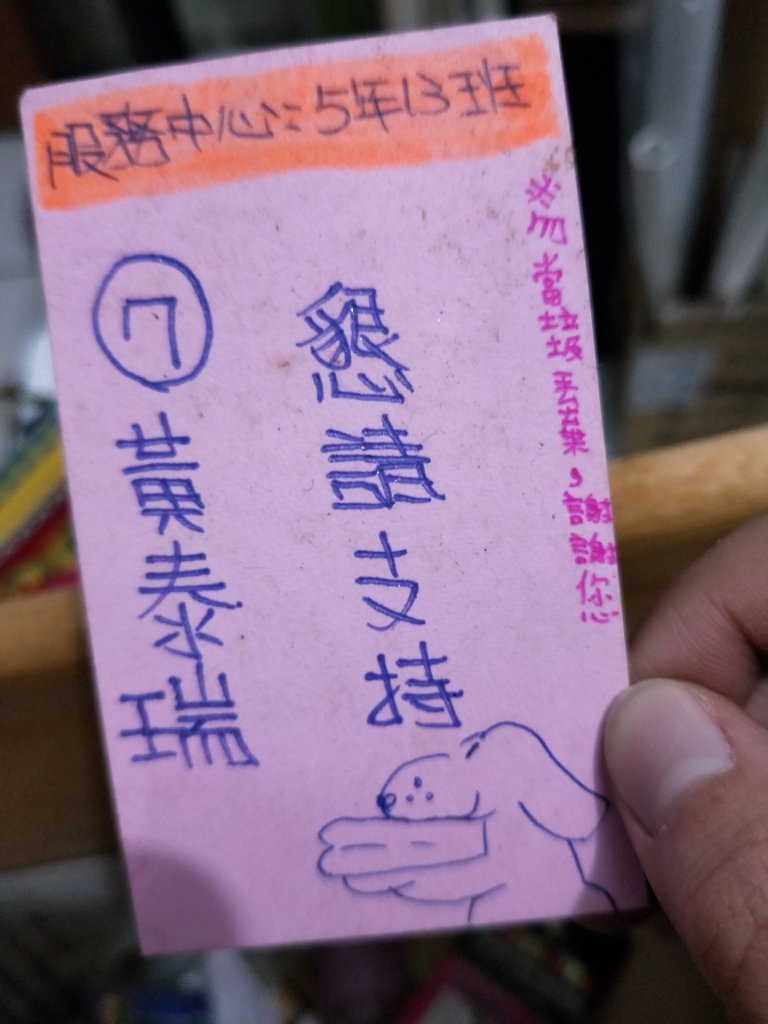 服務中心:5年13班
※勿當垃圾丟棄,謝謝您
懇請支持
7 黃泰瑞